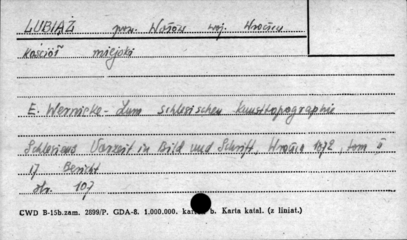 LUBIĄŻ pow. Wołów woj. Wrocław
Kościół miejski
E. Wernicke - Zum schlesischen Kunsttopographie
Schlesiens Vorzeit in Bild und Schrift, Wrocław 1872, tom II
17 Bericht
str. 107
CWD B-15b.zam. 2899/P. GDA-8. 1.000.000. b. Karta katal. (z liniat.)